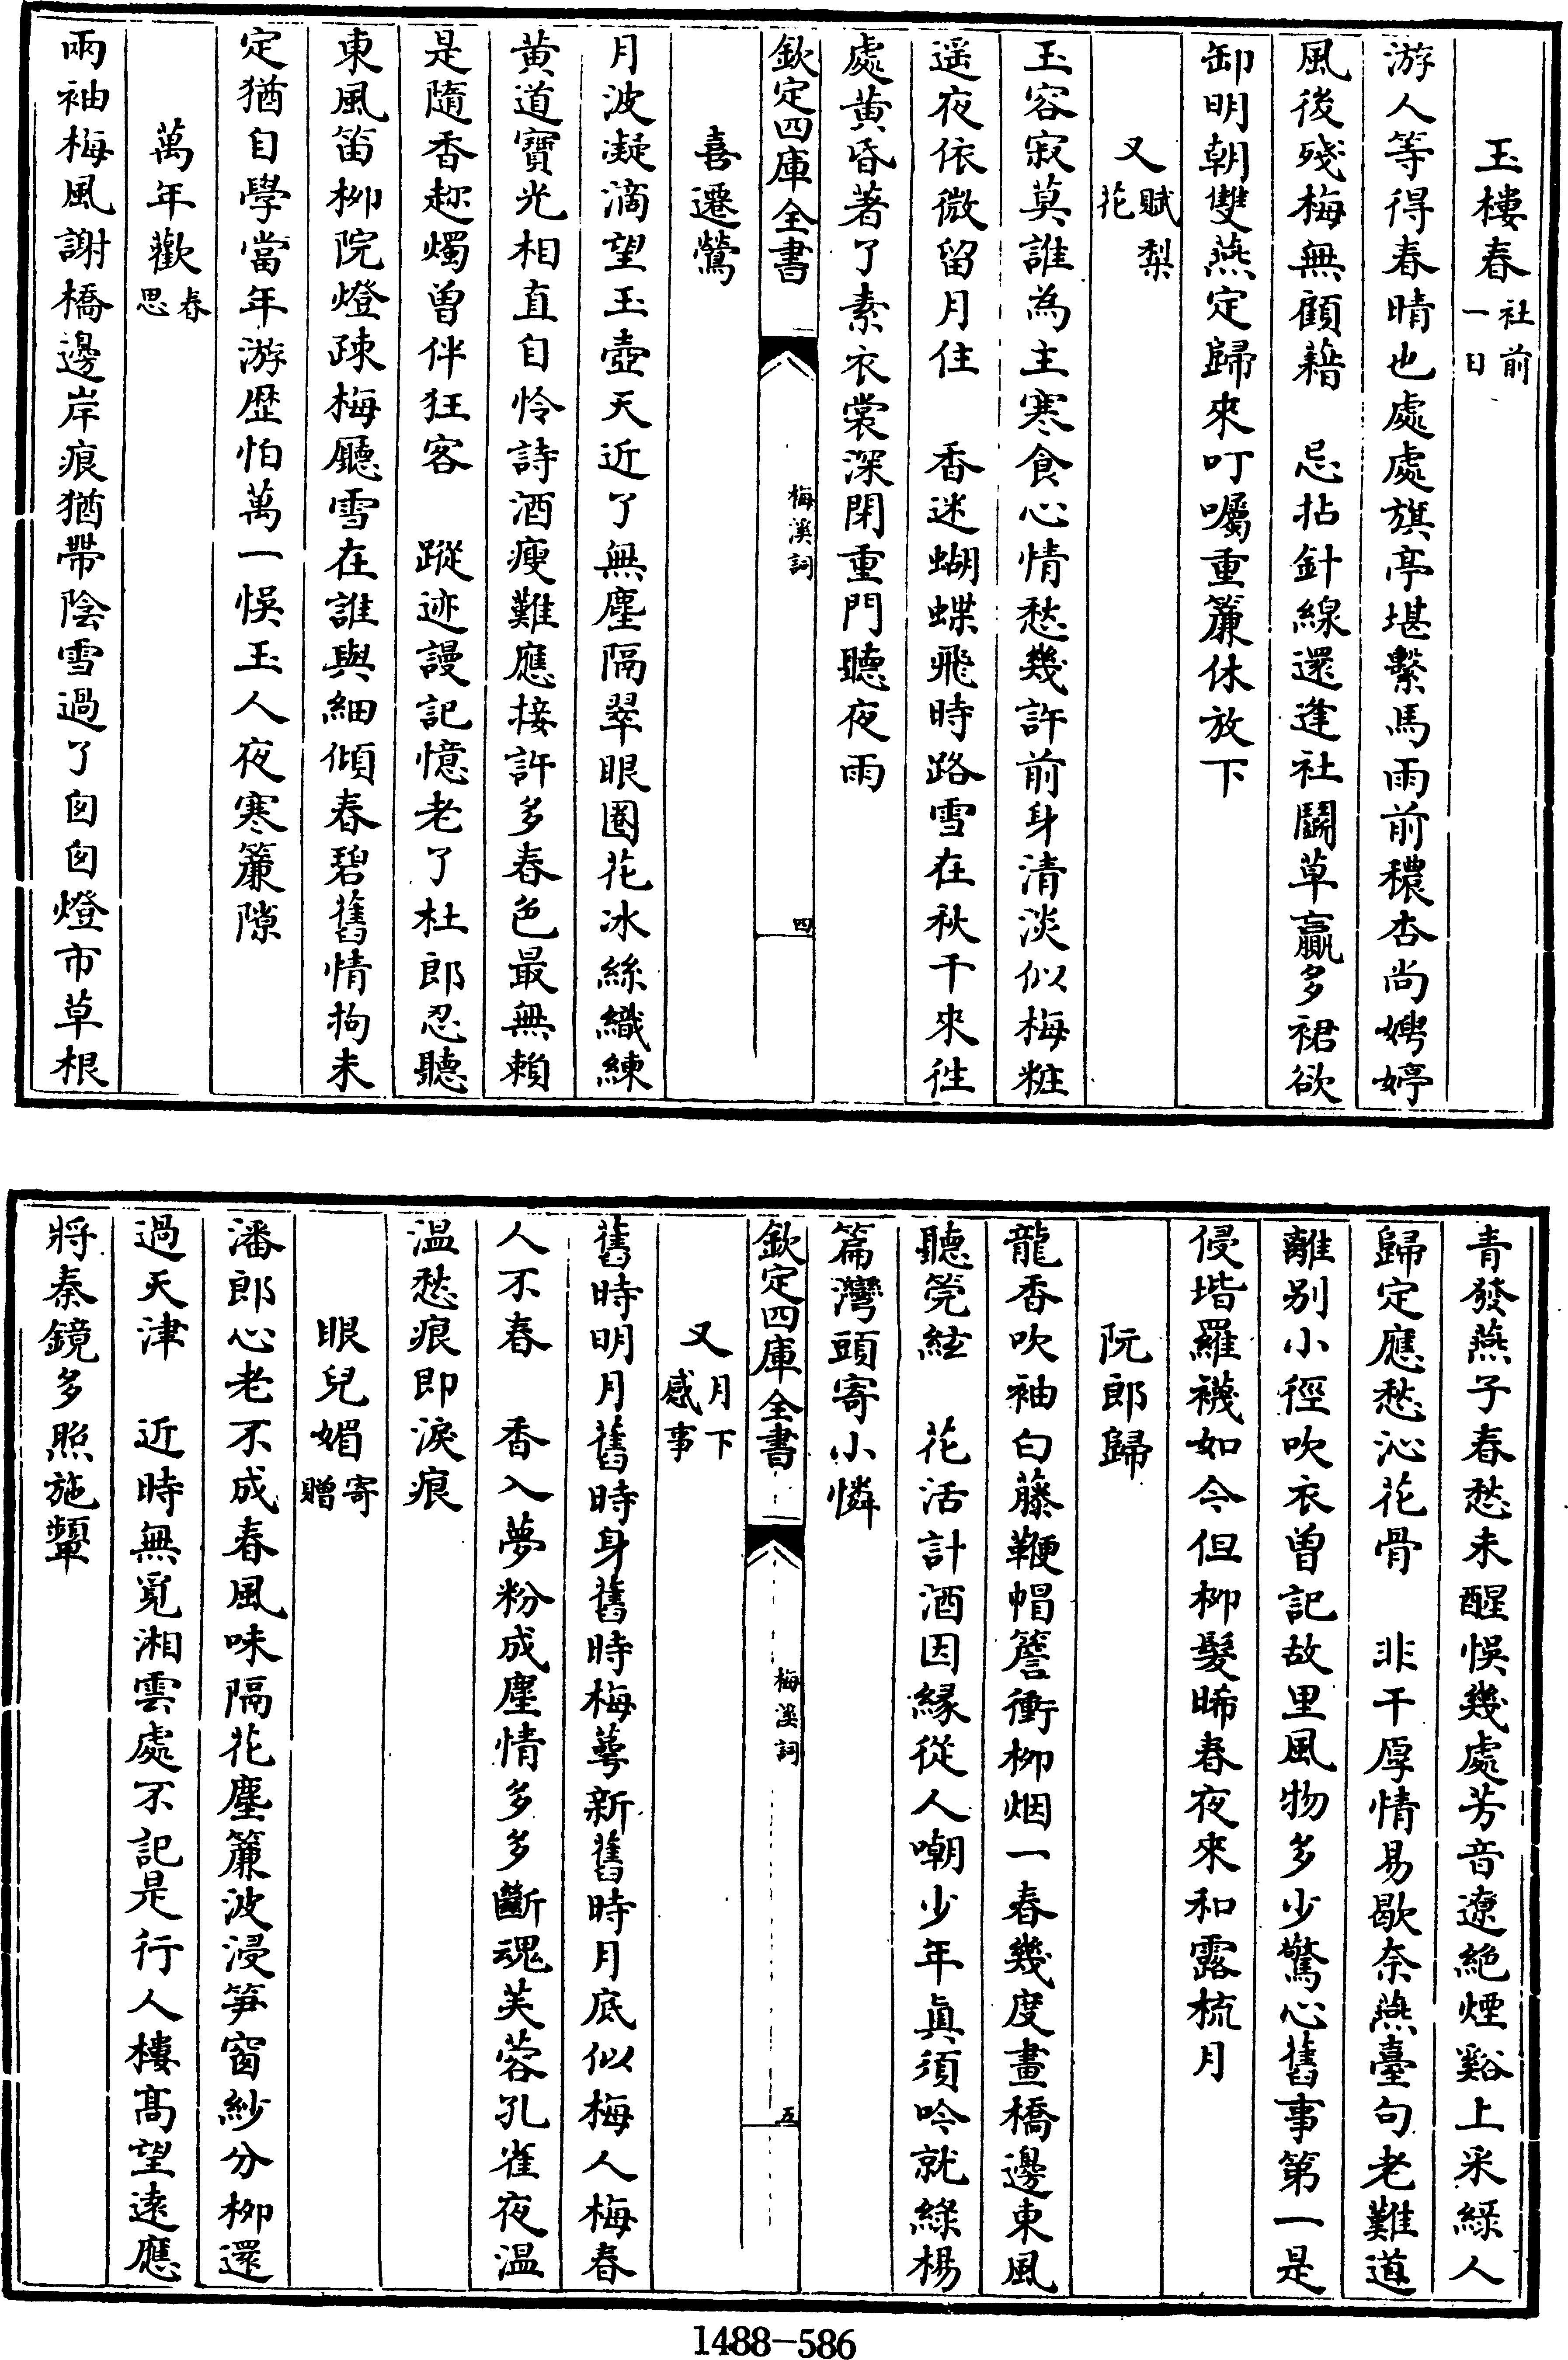 玉樓春社前一日
游人等得春晴也處處旗亭堪繫馬雨前穠杏尚娉婷
風後殘梅無顧藉　忌拈針線還逢社鬭草贏多裙欲
卸明朝雙燕定歸來叮囑重簾休放下
又賦梨花
玉容寂莫誰為主寒食心情愁幾許前身清淡似梅粧
遥夜依微留月住　香迷蝴蝶飛時路雪在秋千來往
處黄昏著了素衣裳深閉重門聽夜雨
欽定四庫全書
梅溪詞
四
喜遷鶯
月波凝滴望玉壺天近了無塵隔翠眼圈花冰絲織練
黄道寶光相直自怜詩酒瘦難應接許多春色最無賴
是隨香趂燭曾伴狂客　蹤迹謾記憶老了杜郎忍聽
東風笛柳院燈疎梅廳雪在誰與細傾春碧舊情拘未
定猶自學當年游歴怕萬一悞玉人夜寒簾隙
萬年歡春思
兩袖梅風謝橋邊岸痕猶帶陰雪過了匆匆燈市草根
青發燕子春愁未醒悞幾處芳音遼絶煙谿上采緑人
歸定應愁沁花骨　非干厚情易歇奈燕臺句老難道
離别小徑吹衣曾記故里風物多少驚心舊事第一是
侵堦羅襪如今但柳髮晞春夜來和露梳月
阮郎歸
龍香吹袖白藤鞭帽簷衝柳烟一春幾度畫橋邊東風
聽筦絃　花活計酒因縁從人嘲少年真須吟就綠楊
篇灣頭寄小憐
欽定四庫全書
梅溪詞
五
又月下感事
舊時明月舊時身舊時梅萼新舊時月底似梅人梅春
人不春　香入夢粉成塵情多多斷魂芙蓉孔雀夜温
温愁痕即淚痕
眼兒媚寄贈
潘郎心老不成春風味隔花塵簾波浸笋窗紗分柳還
過天津　近時無覓湘雲處不記是行人樓髙望逺應
將秦鏡多照施顰
1488-586